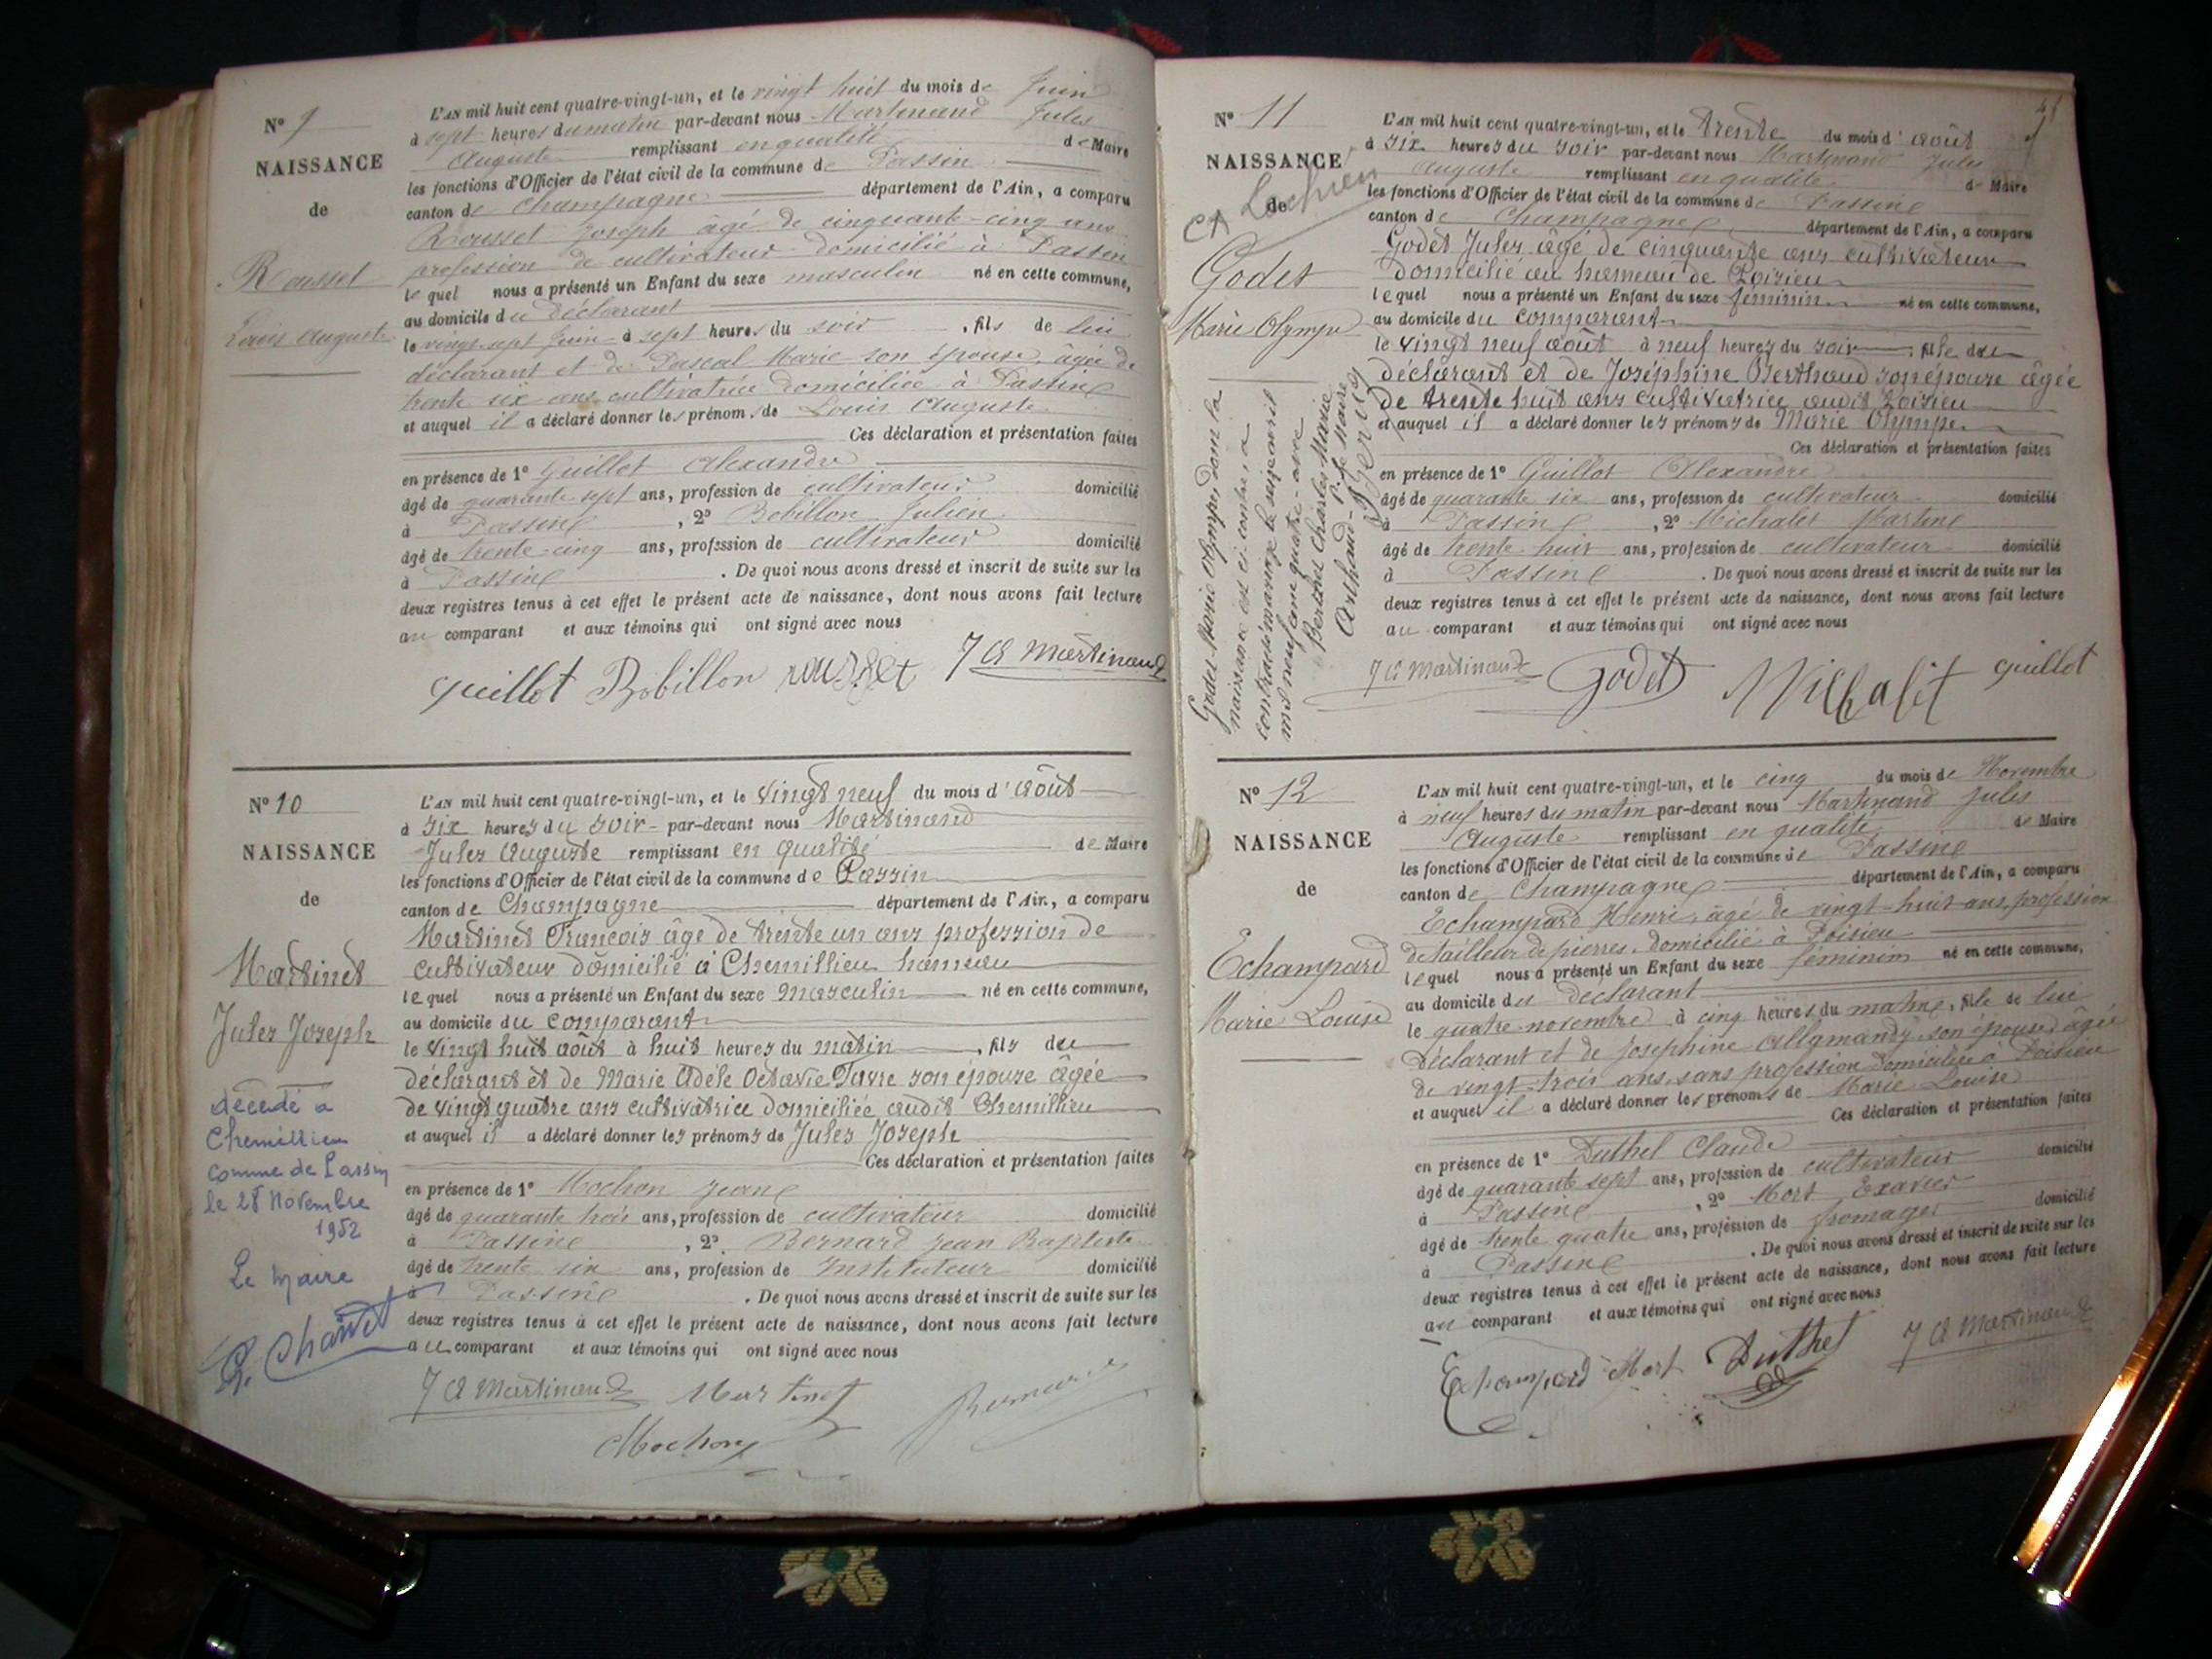 N° 9
NAISSANCE
de
Rousset
Louis Auguste
L'AN mil huit cent quatre-vingt-un, et le vingt huit du mois de Juin
à sept heures du matin par-devant nous Martinand Jules
Auguste remplissant en qualité de Maire
les fonctions d'Officier de l'état civil de la commune de Passin
canton de Champagne département de l'Ain, a comparu
Rousset Joseph âgé de cinquante-cinq ans
profession de cultivateur domicilié à Passin
lequel nous a présenté un Enfant du sexe masculin né en cette commune,
au domicile du déclarant
le vingt sept Juin à sept heures du soir, fils de lui
déclarant et de Pascal Marie son épouse, âgée de
trente six ans cultivatrice domiciliée à Passin
et auquel il a déclaré donner les prénoms de Louis Auguste.
Ces déclaration et présentation faites
en présence de 1° Guillot Alexandre
âgé de quarante sept ans, profession de cultivateur domicilié
à Passin, 2° Bobillon Julien
âgé de trente-cinq ans, profession de cultivateur domicilié
à Passin. De quoi nous avons dressé et inscrit de suite sur les
deux registres tenus à cet effet le présent acte de naissance, dont nous avons fait lecture
au comparant et aux témoins qui ont signé avec nous
Guillot Bobillon rousset J A Martinand
N° 10
NAISSANCE
de
Martinet
Jules Joseph
décédé à
Chemillieu
comune de Passin
le 28 Novembre
1952
Le Maire
L'AN mil huit cent quatre-vingt-un, et le vingt neuf du mois d'Août
à six heures du soir par-devant nous Martinand
Jules Auguste remplissant en qualité de Maire
les fonctions d'Officier de l'état civil de la commune de Passin
canton de Champagne département de l'Ain, a comparu
Martinet François âgé de trente un ans profession de
cultivateur domicilié à Chemillieu hameau
lequel nous a présenté un Enfant du sexe masculin né en cette commune,
au domicile du comparant
le vingt huit août à huit heures du matin, fils du
déclarant et de Marie Adèle Octavie Favre son épouse âgée
de vingt quatre ans cultivatrice domiciliée audit Chemillieu
et auquel il a déclaré donner les prénoms de Jules Joseph
Ces déclaration et présentation faites
en présence de 1° Mochon Jean
âgé de quarante trois ans, profession de cultivateur domicilié
à Passin, 2° Bernard Jean Baptiste
âgé de trente six ans, profession de Instituteur domicilié
à Passin. De quoi nous avons dressé et inscrit de suite sur les
deux registres tenus à cet effet le présent acte de naissance, dont nous avons fait lecture
au comparant et aux témoins qui ont signé avec nous
J A Martinand Martinet Bernard
Mochon
N° 11
NAISSANCE
de
Godet
Marie Olympe
Godet Marie Olympe dont la
naissance est ci-contre a
contracté mariage le seize avril
mil neuf cent quatre avec
Berthet Charles Marie
L'AN mil huit cent quatre-vingt-un, et le trente du mois d'août
à six heures du soir par-devant nous Martinand Jules
Auguste remplissant en qualité de Maire
les fonctions d'Officier de l'état civil de la commune de Passin
canton de Champagne département de l'Ain, a comparu
Godet Jules âgé de cinquante ans cultivateur
domicilié au hameau de Poisieu
lequel nous a présenté un Enfant du sexe féminin né en cette commune,
au domicile du comparant
le vingt neuf août à neuf heures du soir, fille du
déclarant et de Joséphine Berthaud son épouse âgée
de trente huit ans cultivatrice audit Poisieu
et auquel il a déclaré donner les prénoms de Marie Olympe
Ces déclaration et présentation faites
en présence de 1° Guillot Alexandre
âgé de quarante six ans, profession de cultivateur domicilié
à Passin, 2° Michalet Martin
âgé de trente huit ans, profession de cultivateur domicilié
à Passin. De quoi nous avons dressé et inscrit de suite sur les
deux registres tenus à cet effet le présent acte de naissance, dont nous avons fait lecture
au comparant et aux témoins qui ont signé avec nous
J A Martinand Godet Michalet Guillot
N° 12
NAISSANCE
de
Echampard
Marie Louise
L'AN mil huit cent quatre-vingt-un, et le cinq du mois de Novembre
à neuf heures du matin par-devant nous Martinand Jules
Auguste remplissant en qualité de Maire
les fonctions d'Officier de l'état civil de la commune de Passin
canton de Champagne département de l'Ain, a comparu
Echampard Henri, âgé de vingt-huit ans, profession
de tailleur de pierres, domicilié à Poisieu
lequel nous a présenté un Enfant du sexe féminin né en cette commune,
au domicile du déclarant
le quatre novembre à cinq heures du matin, fille de lui
déclarant et de Joséphine Allymand, son épouse âgée
de vingt-trois ans, sans profession domiciliée à Poisieu
et auquel il a déclaré donner les prénoms de Marie Louise
Ces déclaration et présentation faites
en présence de 1° Duthel Claude
âgé de quarante sept ans, profession de cultivateur domicilié
à Passin, 2° Mort Exavier
âgé de trente quatre ans, profession de fromager domicilié
à Passin. De quoi nous avons dressé et inscrit de suite sur les
deux registres tenus à cet effet le présent acte de naissance, dont nous avons fait lecture
au comparant et aux témoins qui ont signé avec nous
Echampard Mort Duthel J A Martinand